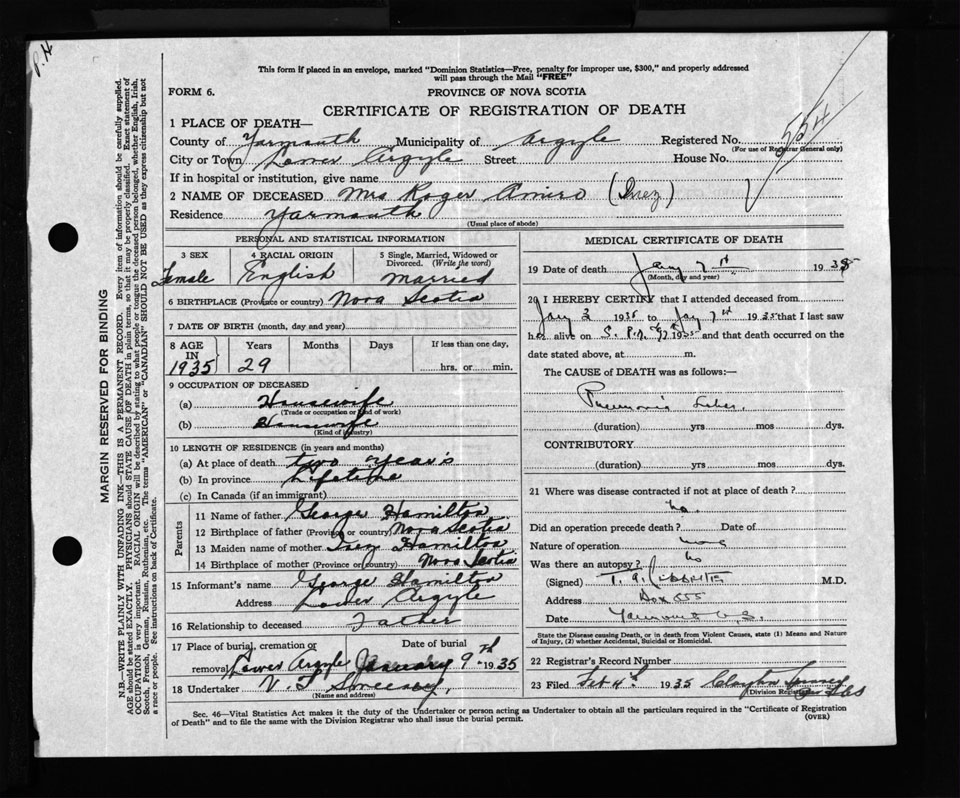 P.H
This form if placed in an envelope, marked "Dominion Statistics—Free, penalty for improper use, $300," and properly addressed
will pass through the Mail "FREE"
FORM 6.
PROVINCE OF NOVA SCOTIA
CERTIFICATE OF REGISTRATION OF DEATH
1 PLACE OF DEATH—
County of Yarmouth Municipality of Argyle Registered No. 554
(For use of Registrar General only)
City or Town Lower Argyle Street House No.
If in hospital or institution, give name
2 NAME OF DECEASED Mrs Roger Amiro (Inez)
Residence Yarmouth
(Usual place of abode)
PERSONAL AND STATISTICAL INFORMATION
3 SEX 4 RACIAL ORIGIN 5 Single, Married, Widowed or
Divorced. (Write the word)
Female English Married
6 BIRTHPLACE (Province or country) Nova Scotia
7 DATE OF BIRTH (month, day and year)
8 AGE IN 1935 Years 29 Months Days If less than one day,
hrs. or min.
9 OCCUPATION OF DECEASED
(a) Housewife
(Trade or occupation or kind of work)
(b) Housewife
(Kind of industry)
10 LENGTH OF RESIDENCE (in years and months)
(a) At place of death two year's
(b) In province Lifetime
(c) In Canada (if an immigrant)
Parents
11 Name of father George Hamilton
12 Birthplace of father (Province or country) Nova Scotia
13 Maiden name of mother Hamilton
14 Birthplace of mother (Province or country) Nova Scotia
15 Informant's name George Hamilton
Address Lower Argyle
16 Relationship to deceased Father
17 Place of burial, cremation or Date of burial
removal Lower Argyle January 9th 1935
18 Undertaker V. F. Sweeney.
(Name and address)
MEDICAL CERTIFICATE OF DEATH
19 Date of death Jany 7th 1935
(Month, day and year)
20 I HEREBY CERTIFY that I attended deceased from
Jany 2 1935 to Jany 7th 1935 that I last saw
her alive on 1935 and that death occurred on the
date stated above, at m.
The CAUSE of DEATH was as follows:—
Pneumonia
(duration) yrs mos dys.
CONTRIBUTORY
(duration) yrs mos dys.
21 Where was disease contracted if not at place of death?
Did an operation precede death? no. Date of
Nature of operation
Was there an autopsy? no
(Signed) T. A. M.D.
Address Box
Date Yarmouth N.S.
State the Disease causing Death, or in death from Violent Causes, state (1) Means and Nature
of Injury, (2) whether Accidental, Suicidal or Homicidal.
22 Registrar's Record Number
23 Filed Feb 4th 1935 Clayton
(Division Registrar)
Sec. 46—Vital Statistics Act makes it the duty of the Undertaker or person acting as Undertaker to obtain all the particulars required in the "Certificate of Registration
of Death" and to file the same with the Division Registrar who shall issue the burial permit.
(OVER)
MARGIN RESERVED FOR BINDING
N.B.—WRITE PLAINLY WITH UNFADING INK—THIS IS A PERMANENT RECORD. Every item of information should be carefully supplied.
AGE should be stated EXACTLY. PHYSICIANS should STATE CAUSE OF DEATH in plain terms, so that it may be properly classified. Exact statement of
OCCUPATION is very important. RACIAL ORIGIN will be described by stating to what people or tongue the deceased person belonged, whether English, Irish,
Scotch, French, German, Russian, Ruthenian, etc. The terms "AMERICAN" or "CANADIAN" SHOULD NOT BE USED as they express citizenship but not
a race or people. See instructions on back of Certificate.